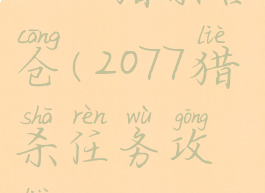 cāng liè
仓(2077猎
shā rèn wù gōng
杀任务攻